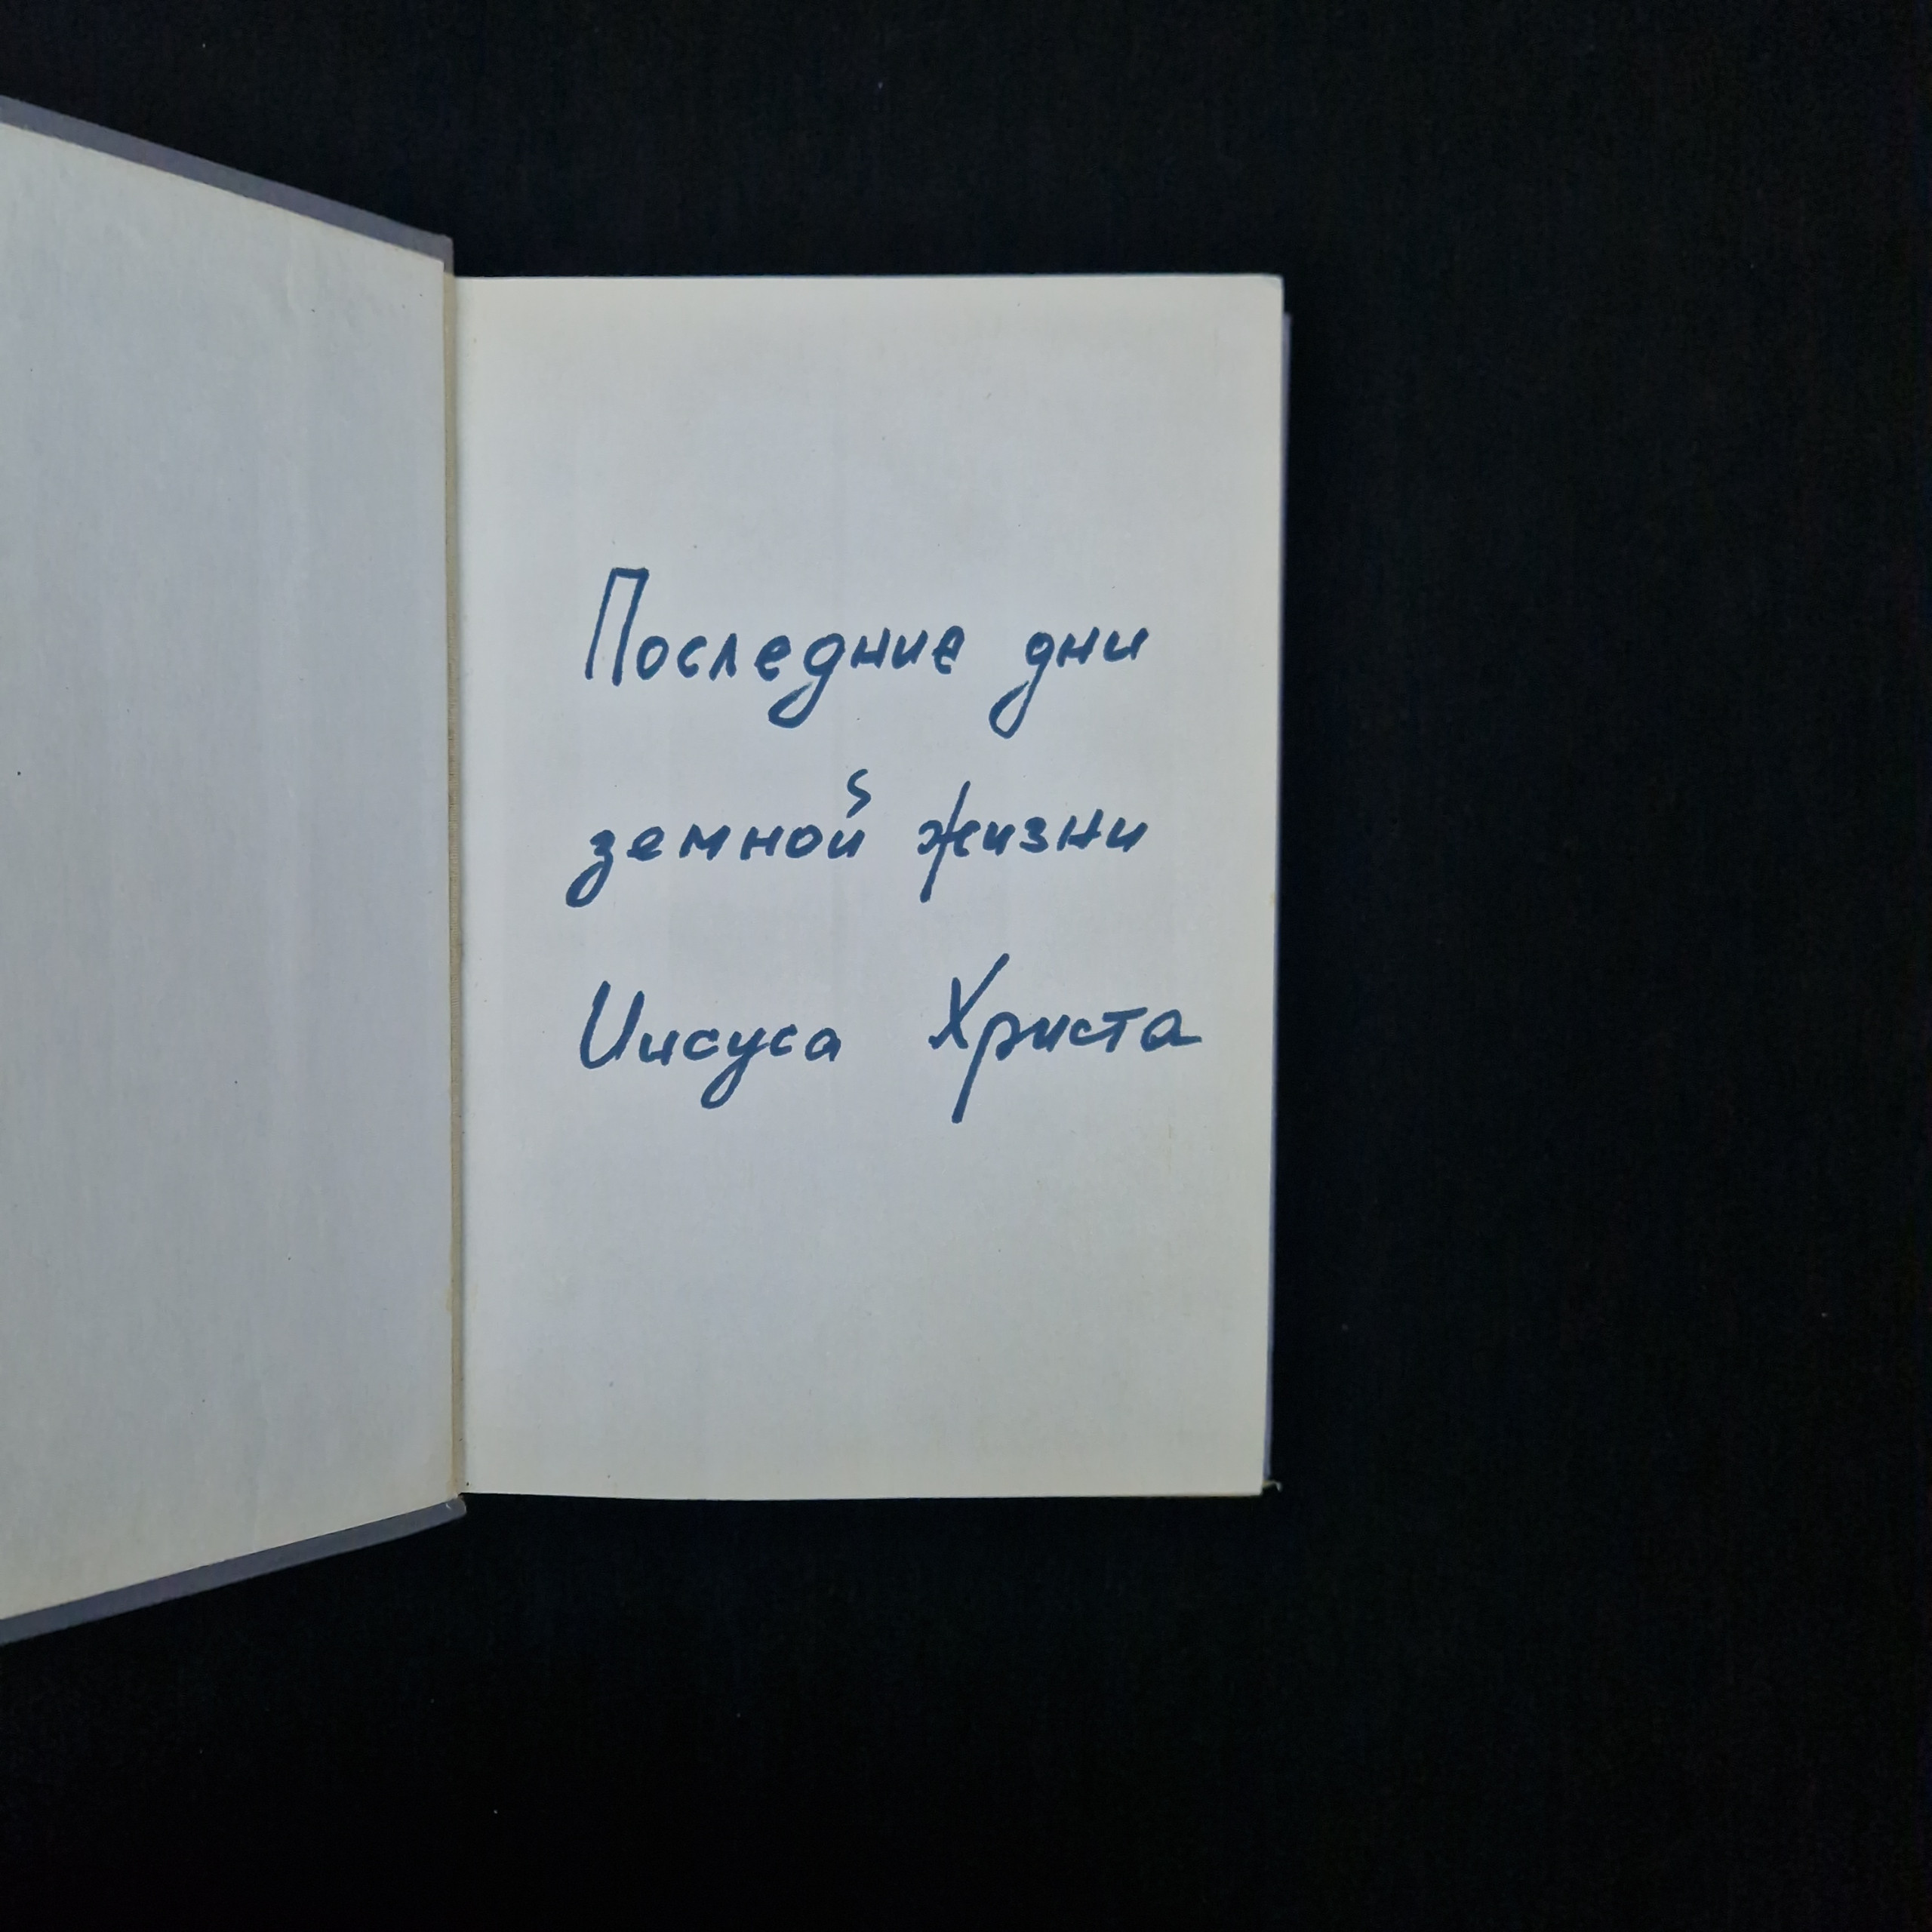 Последние дни
земной жизни
Иисуса Христа